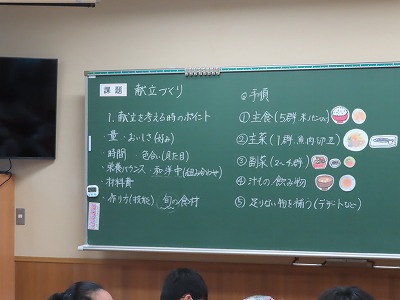 課題 献立づくり
1. 献立を考える時のポイント
・量 ・おいしさ(好み)
・時間 ・色合い(見た目)
・栄養バランス ・和洋中(組み合わせ)
・材料費
・作り方(技能) ・旬の食材
◎手順
①主食(5群 米パンetc)
②主菜(1群 魚肉卵豆)
③副菜(2~4群)
④汁もの 飲み物
⑤足りない物を補う(デザートなど)